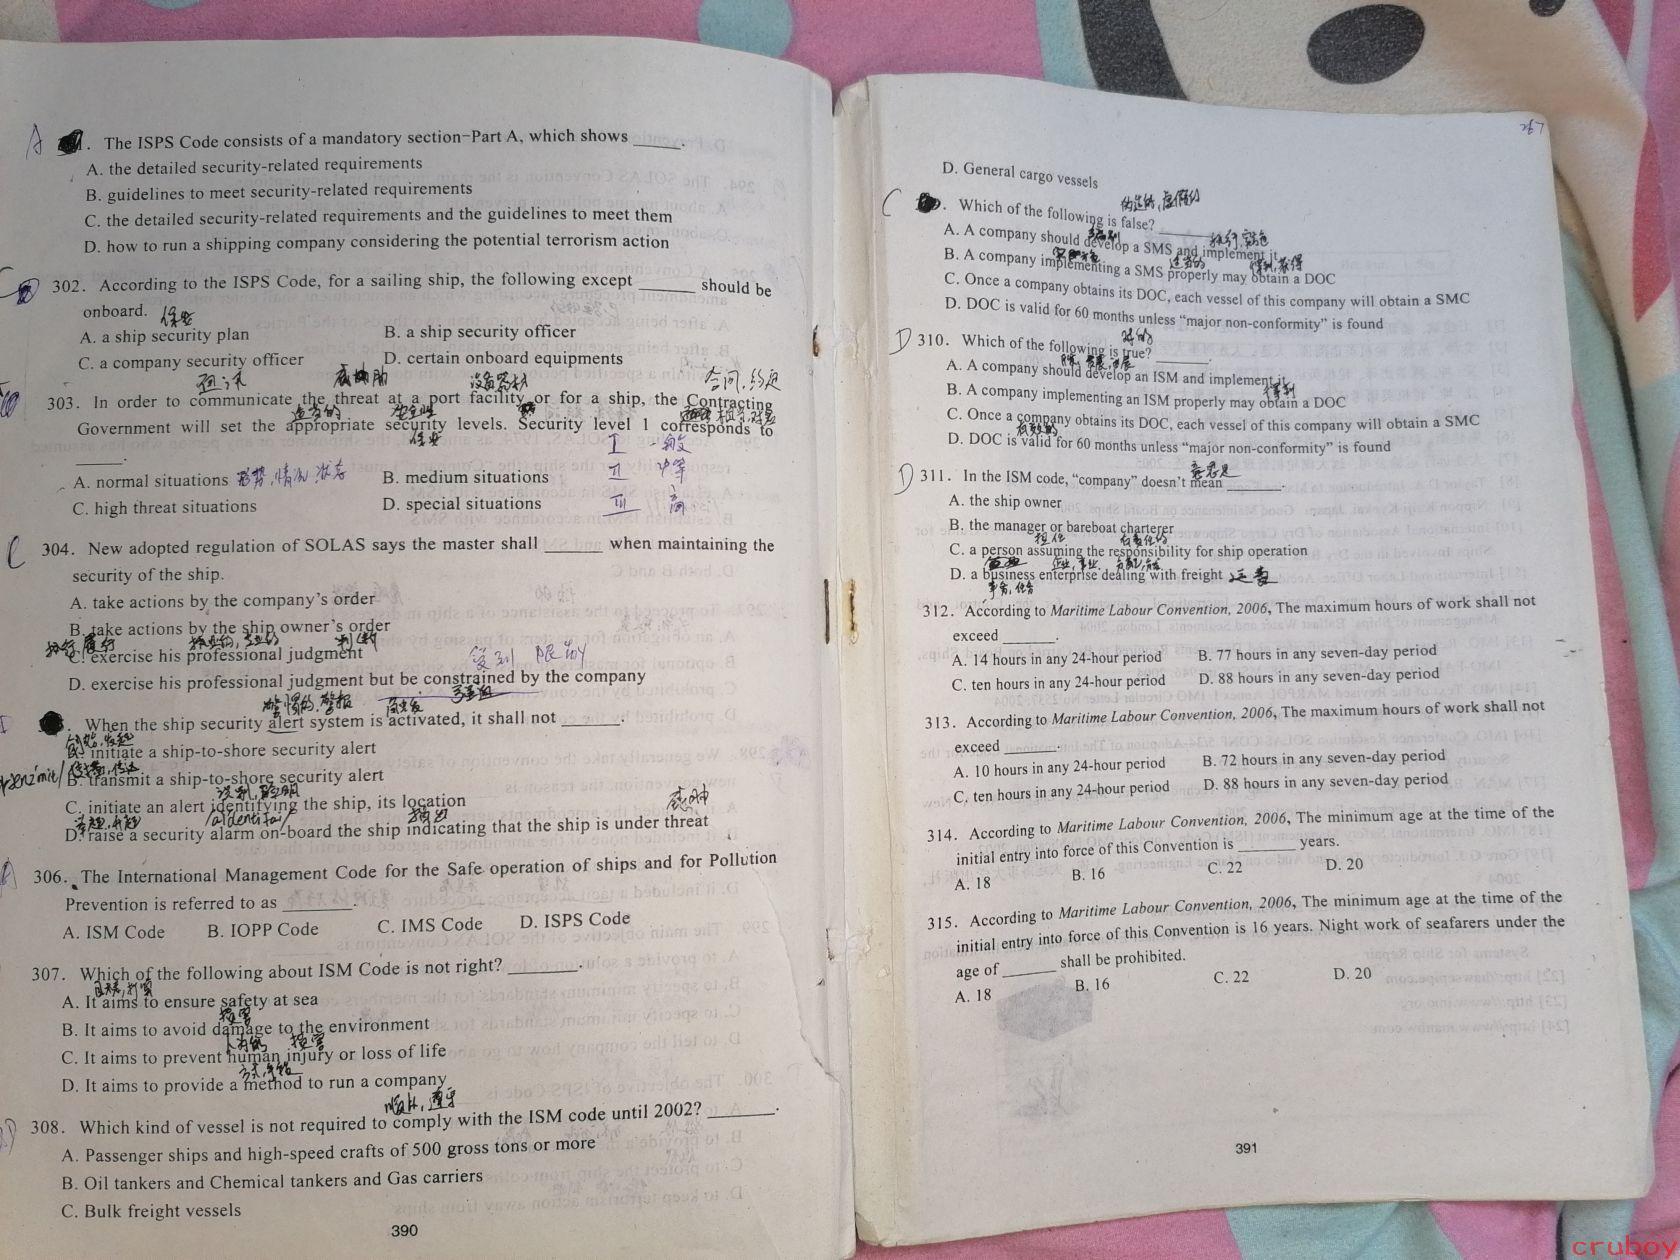 A 1. The ISPS Code consists of a mandatory section-Part A, which shows _____.
A. the detailed security-related requirements
B. guidelines to meet security-related requirements
C. the detailed security-related requirements and the guidelines to meet them
D. how to run a shipping company considering the potential terrorism action
C 302. According to the ISPS Code, for a sailing ship, the following except ______ should be
onboard. 保安
A. a ship security plan B. a ship security officer
C. a company security officer D. certain onboard equipments
合同,约定
303. In order to communicate the threat at a port facility or for a ship, the Contracting
适当的 安全性
Government will set the appropriate security levels. Security level 1 corresponds to
保安 I 一般
_____.
A. normal situations 形势,情况,状态 B. medium situations II 中等
C. high threat situations D. special situations III 高
C 304. New adopted regulation of SOLAS says the master shall ______ when maintaining the
security of the ship.
A. take actions by the company's order
B. take actions by the ship owner's order
判断
C. exercise his professional judgment 受到 限制
D. exercise his professional judgment but be constrained by the company
警报
. When the ship security alert system is activated, it shall not _______.
A. initiate a ship-to-shore security alert
B. transmit a ship-to-shore security alert
识别,证明
C. initiate an alert identifying the ship, its location
D. raise a security alarm on-board the ship indicating that the ship is under threat
A 306. The International Management Code for the Safe operation of ships and for Pollution
Prevention is referred to as ________.
A. ISM Code B. IOPP Code C. IMS Code D. ISPS Code
307. Which of the following about ISM Code is not right? ________.
A. It aims to ensure safety at sea
损害
B. It aims to avoid damage to the environment
人为的 损害
C. It aims to prevent human injury or loss of life
D. It aims to provide a method to run a company
顺从,遵守
308. Which kind of vessel is not required to comply with the ISM code until 2002? ________.
A. Passenger ships and high-speed crafts of 500 gross tons or more
B. Oil tankers and Chemical tankers and Gas carriers
C. Bulk freight vessels
390
267
D. General cargo vessels
伪造的,虚假的
C . Which of the following is false? _______
执行,实施
A. A company should develop a SMS and implement it
适当的 得到,获得
B. A company implementing a SMS properly may obtain a DOC
C. Once a company obtains its DOC, each vessel of this company will obtain a SMC
D. DOC is valid for 60 months unless "major non-conformity" is found
对的
D 310. Which of the following is true? _______.
A. A company should develop an ISM and implement it
得到
B. A company implementing an ISM properly may obtain a DOC
C. Once a company obtains its DOC, each vessel of this company will obtain a SMC
有效的
D. DOC is valid for 60 months unless "major non-conformity" is found
意思是
D 311. In the ISM code, "company" doesn't mean ________.
A. the ship owner
B. the manager or bareboat charterer
担任 有责任的
C. a person assuming the responsibility for ship operation
企业,事业
D. a business enterprise dealing with freight 运费
事务,任务
312. According to Maritime Labour Convention, 2006, The maximum hours of work shall not
exceed _______.
A. 14 hours in any 24-hour period B. 77 hours in any seven-day period
C. ten hours in any 24-hour period D. 88 hours in any seven-day period
313. According to Maritime Labour Convention, 2006, The maximum hours of work shall not
exceed _______.
A. 10 hours in any 24-hour period B. 72 hours in any seven-day period
C. ten hours in any 24-hour period D. 88 hours in any seven-day period
314. According to Maritime Labour Convention, 2006, The minimum age at the time of the
initial entry into force of this Convention is ________ years.
A. 18 B. 16 C. 22 D. 20
315. According to Maritime Labour Convention, 2006, The minimum age at the time of the
initial entry into force of this Convention is 16 years. Night work of seafarers under the
age of _______ shall be prohibited.
A. 18 B. 16 C. 22 D. 20
391
cruboy